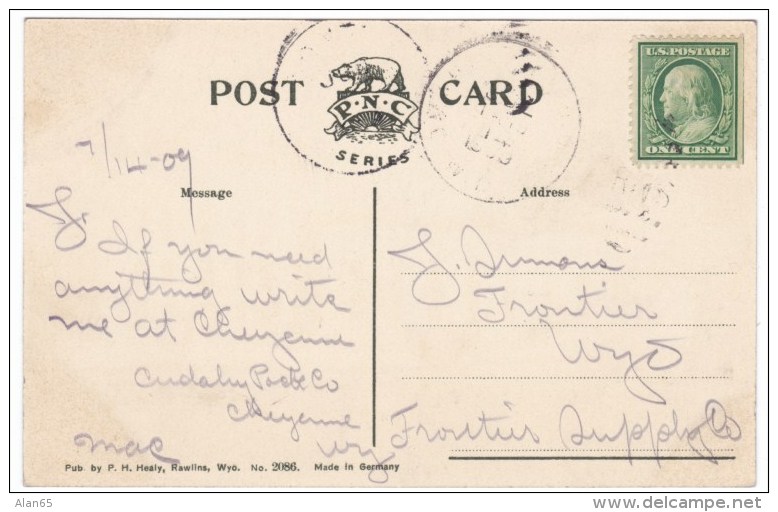 POST CARD
P·N·C
SERIES
U.S. POSTAGE
ONE CENT
7/14-09
Message
Address
J.
If you need
anything write
me at Cheyenne
Cudahy Pack Co
Cheyenne
Wy
Mac
J. Simons
Frontier
Wyo
Frontier Supply Co
Pub. by P. H. Healy, Rawlins, Wyo. No. 2086. Made in Germany
Alan65
delcampe.net